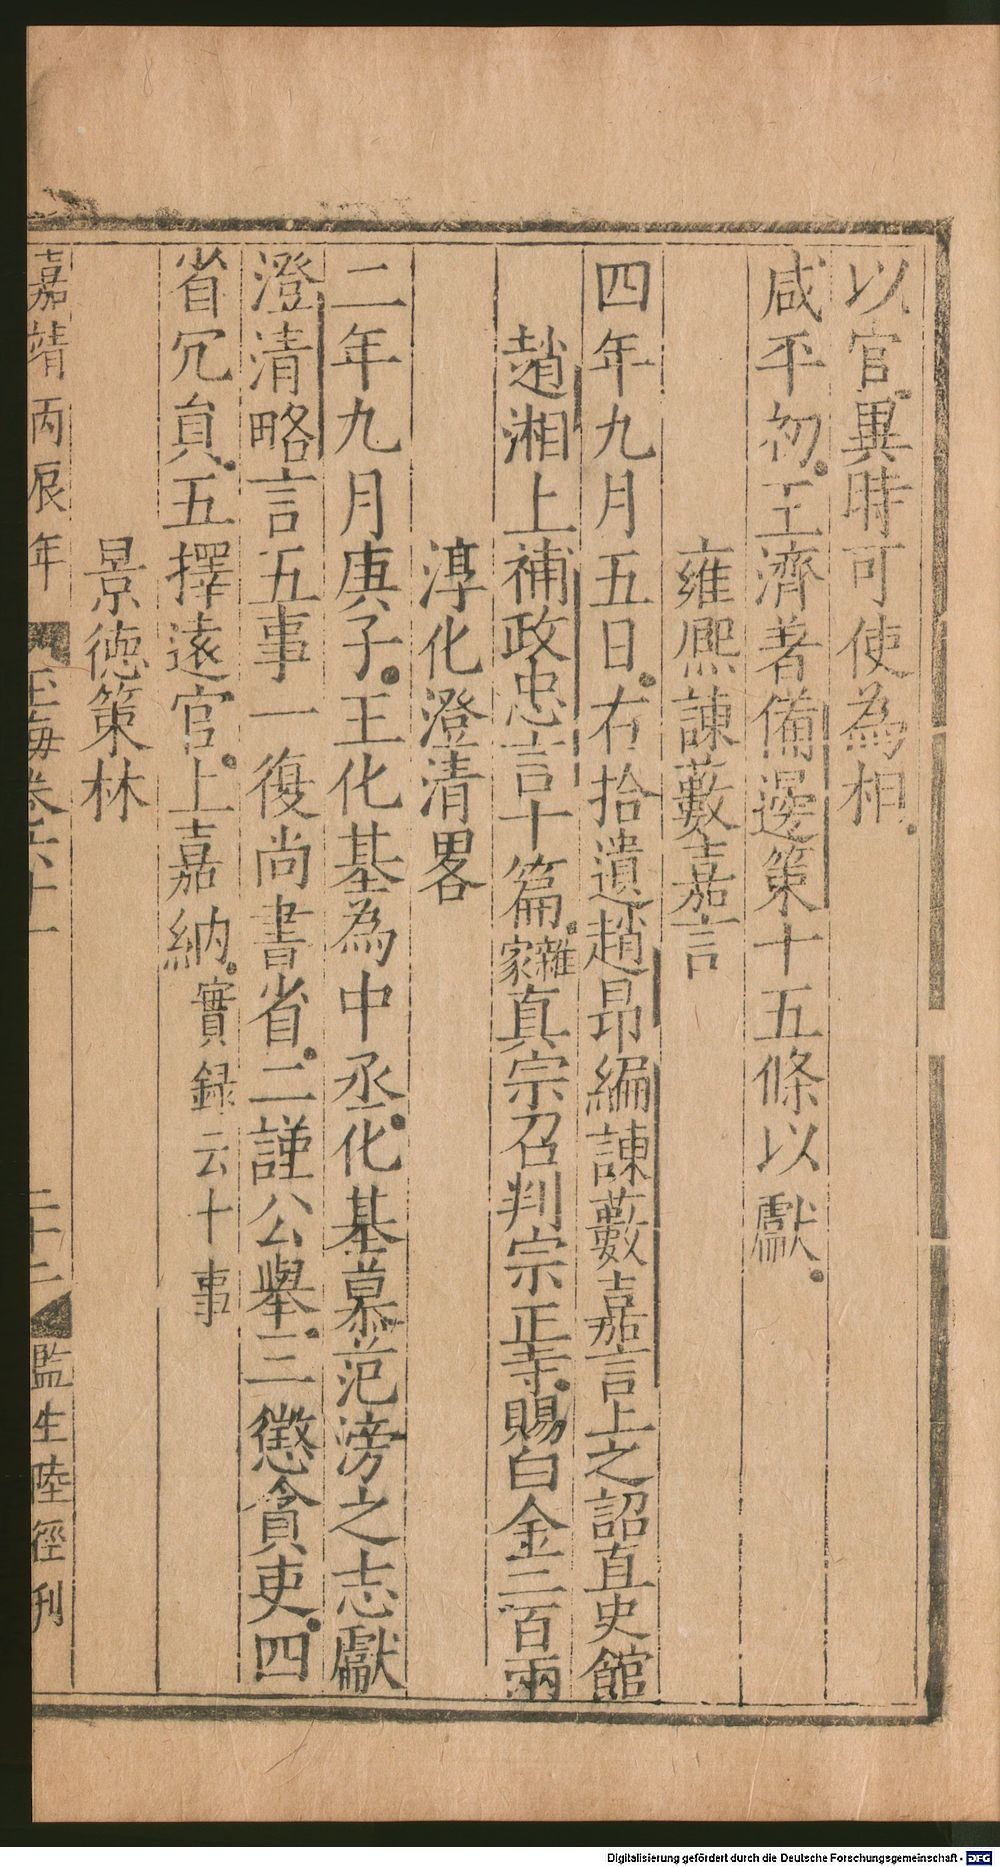 以官異時可使為相
咸平初王濟著備邊策十五條以獻
雍熈諫藪嘉言
四年九月五日右拾遺趙昂編諫藪嘉言上之詔直史館
趙湘上補政忠言十篇雜家真宗召判宗正寺賜白金二百兩
淳化澄清畧
二年九月庚子王化基為中丞化基慕范滂之志獻
澄清略言五事一復尚書省二謹公舉三懲貪吏四
省冗貟五擇遠官上嘉納實録云十事
景徳策林
嘉靖丙辰年 玉海卷六十一 二十二 監生陸徑刋
Digitalisierung gefördert durch die Deutsche Forschungsgemeinschaft - DFG